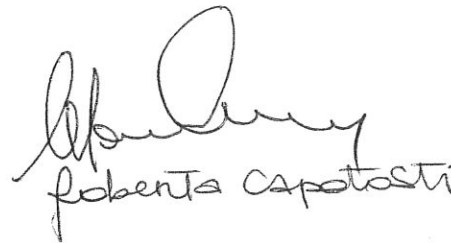 Roberta Capotosti